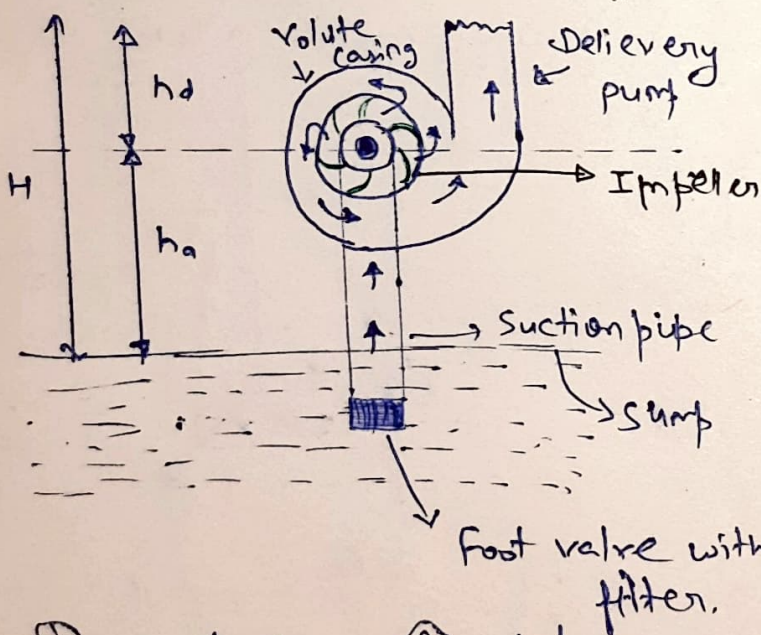 Volute
casing
Delievery
pump
hd
H
Impeller
ha
Suction pipe
Sump
Foot valve with
filter.